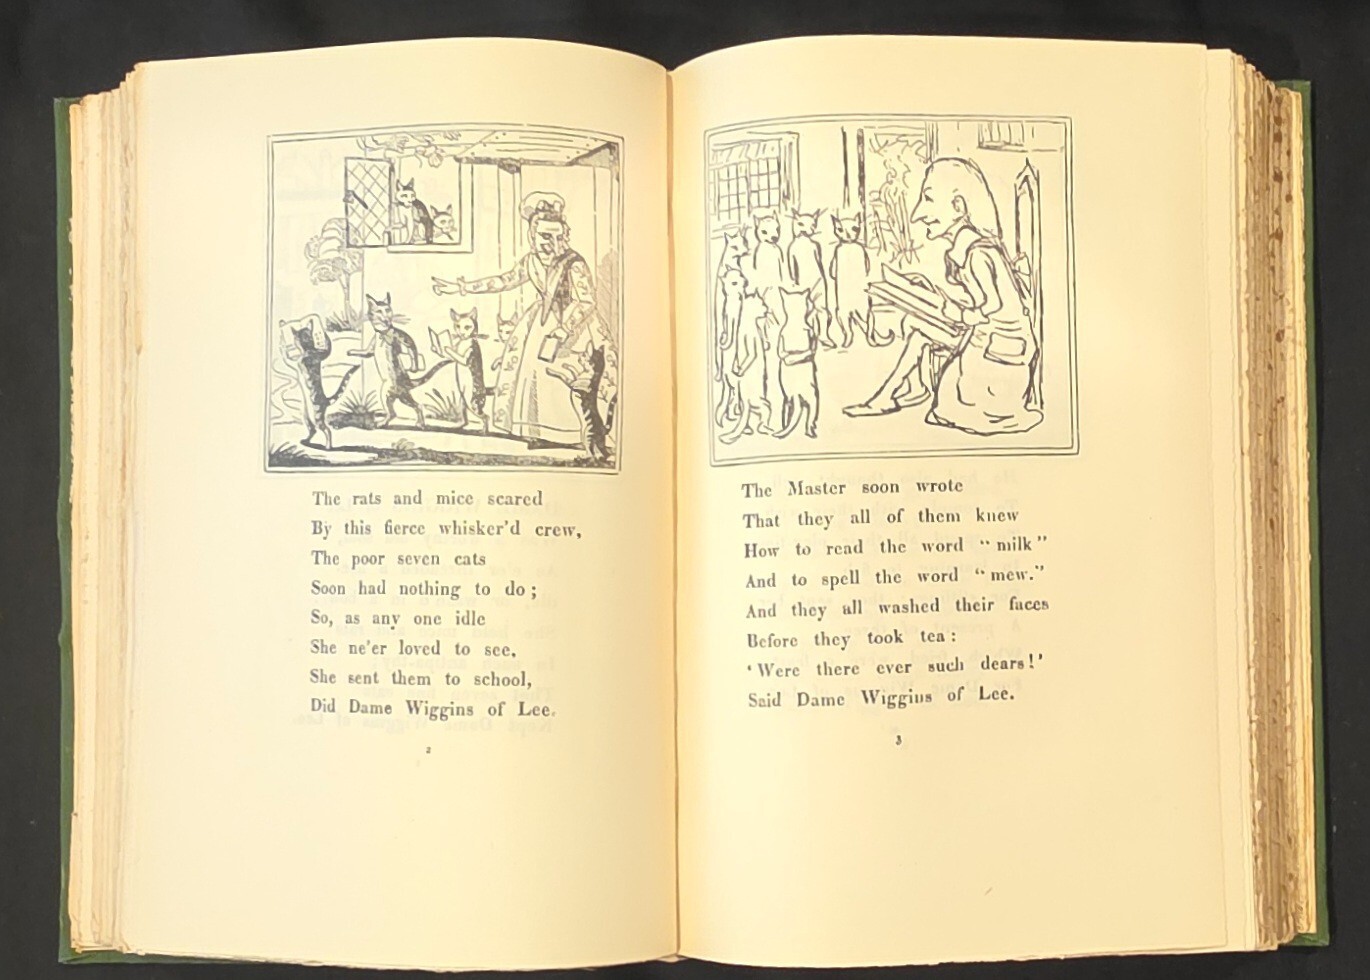 The rats and mice scared
By this fierce whisker'd crew,
The poor seven cats
Soon had nothing to do;
So, as any one idle
She ne'er loved to see,
She sent them to school,
Did Dame Wiggins of Lee.
2
The Master soon wrote
That they all of them knew
How to read the word "milk"
And to spell the word "mew."
And they all washed their faces
Before they took tea:
'Were there ever such dears!'
Said Dame Wiggins of Lee.
3